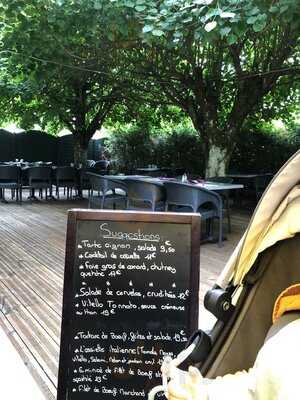 Suggestions
* Tarte oignon, salade 9,50€
* Cocktail de crevette 11€
* Foie gras de canard, chutney
* Salade de cervelas, crudités 12€
* Vitello Tonnato, sauce crémeuse
au thon 19€
* Tartare de Bœuf, frites et salade
* L'assiette italienne (
* Emincé de filet de Bœuf
* Filet de Bœuf Marchand